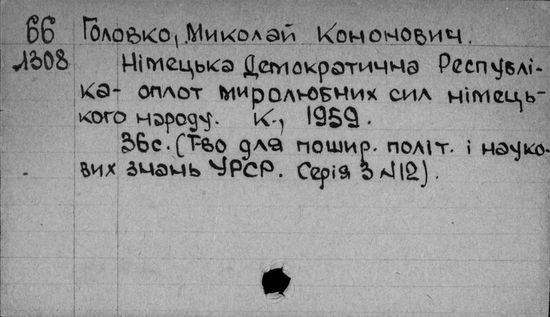 66 Головко, Миколай Кононович.
1308 Німецька Демократична Республі-
ка- оплот миролюбних сил німець-
кого народу. К., 1959.
36с. (Т-во для пошир. політ. і науко-
вих знань УРСР. Серія 3 №12).